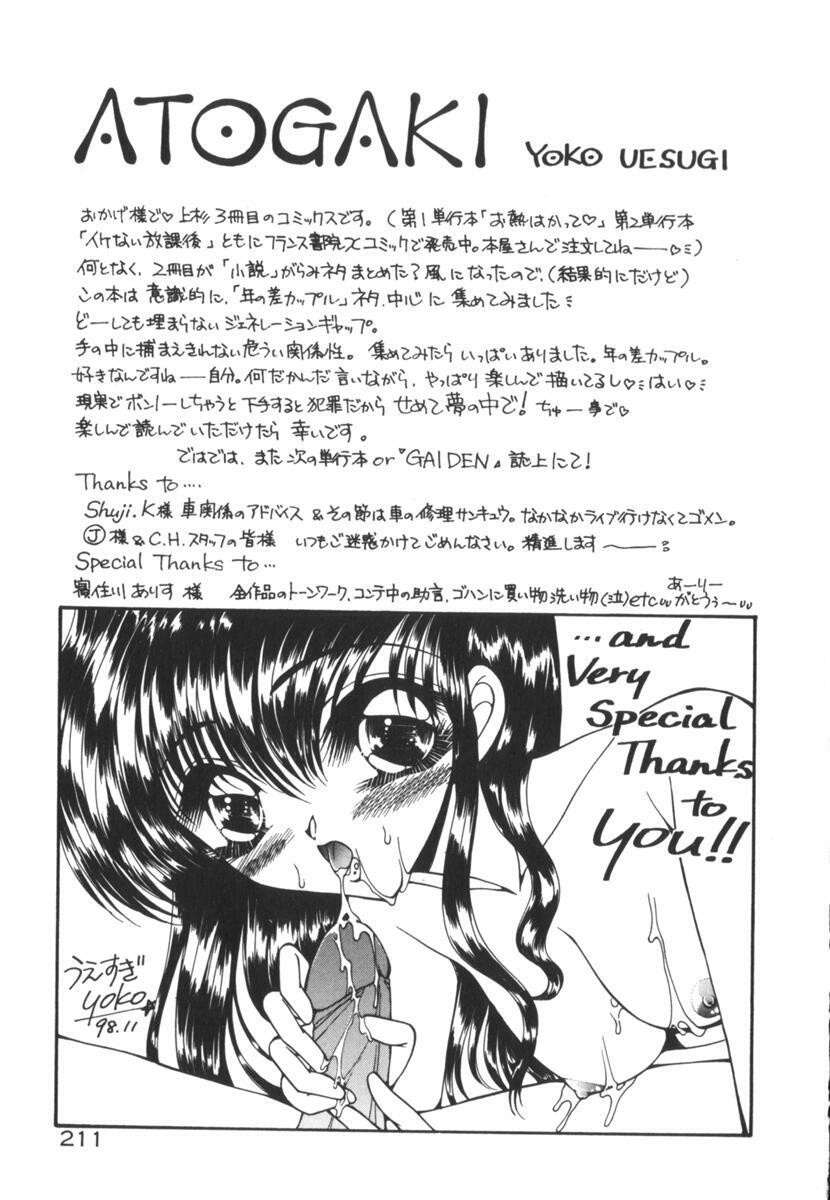 ATOGAKI YOKO UESUGI
おかげ様で♡上杉3冊目のコミックスです。(第1単行本「お熱はかって♡」第2単行本
「イケない放課後」ともにフランス書院Xコミックで発売中。本屋さんで注文してね——♡ミ)
何となく、2冊目が「小説」がらみネタまとめた?風になったので、(結果的にだけど)
この本は意識的に、「年の差カップル」ネタ、中心に集めてみましたミ
どーしても埋まらないジェネレーションギャップ。
手の中に捕まえきれない危うい関係性。集めてみたらいっぱいありました。年の差カップル。
好きなんですね——自分。何だかんだ言いながら、やっぱり楽しんで描いてるし♡ミはい♡ミ
現実でボンノーしちゃうと下手すると犯罪だからせめて夢の中で!ちゅー事で♡
楽しんで読んでいただけたら幸いです。
ではでは、また次の単行本or『GAIDEN』誌上にて!
Thanks to‥‥
Shuji.K様 車関係のアドバイス&その節は車の修理サンキュウ。なかなかライブ行けなくてゴメン。
Ⓙ様&C.H.スタッフの皆様 いつもご迷惑かけてごめんなさい。精進します
Special Thanks to…
寝住川ありす様 全作品のトーンワーク、コンテ中の助言、ゴハンに買い物洗い物(泣)etc あーりーがとうぅ〜
…and
Very
Special
Thanks
to
YOU!!
うえすぎ
yoko
98.11
211